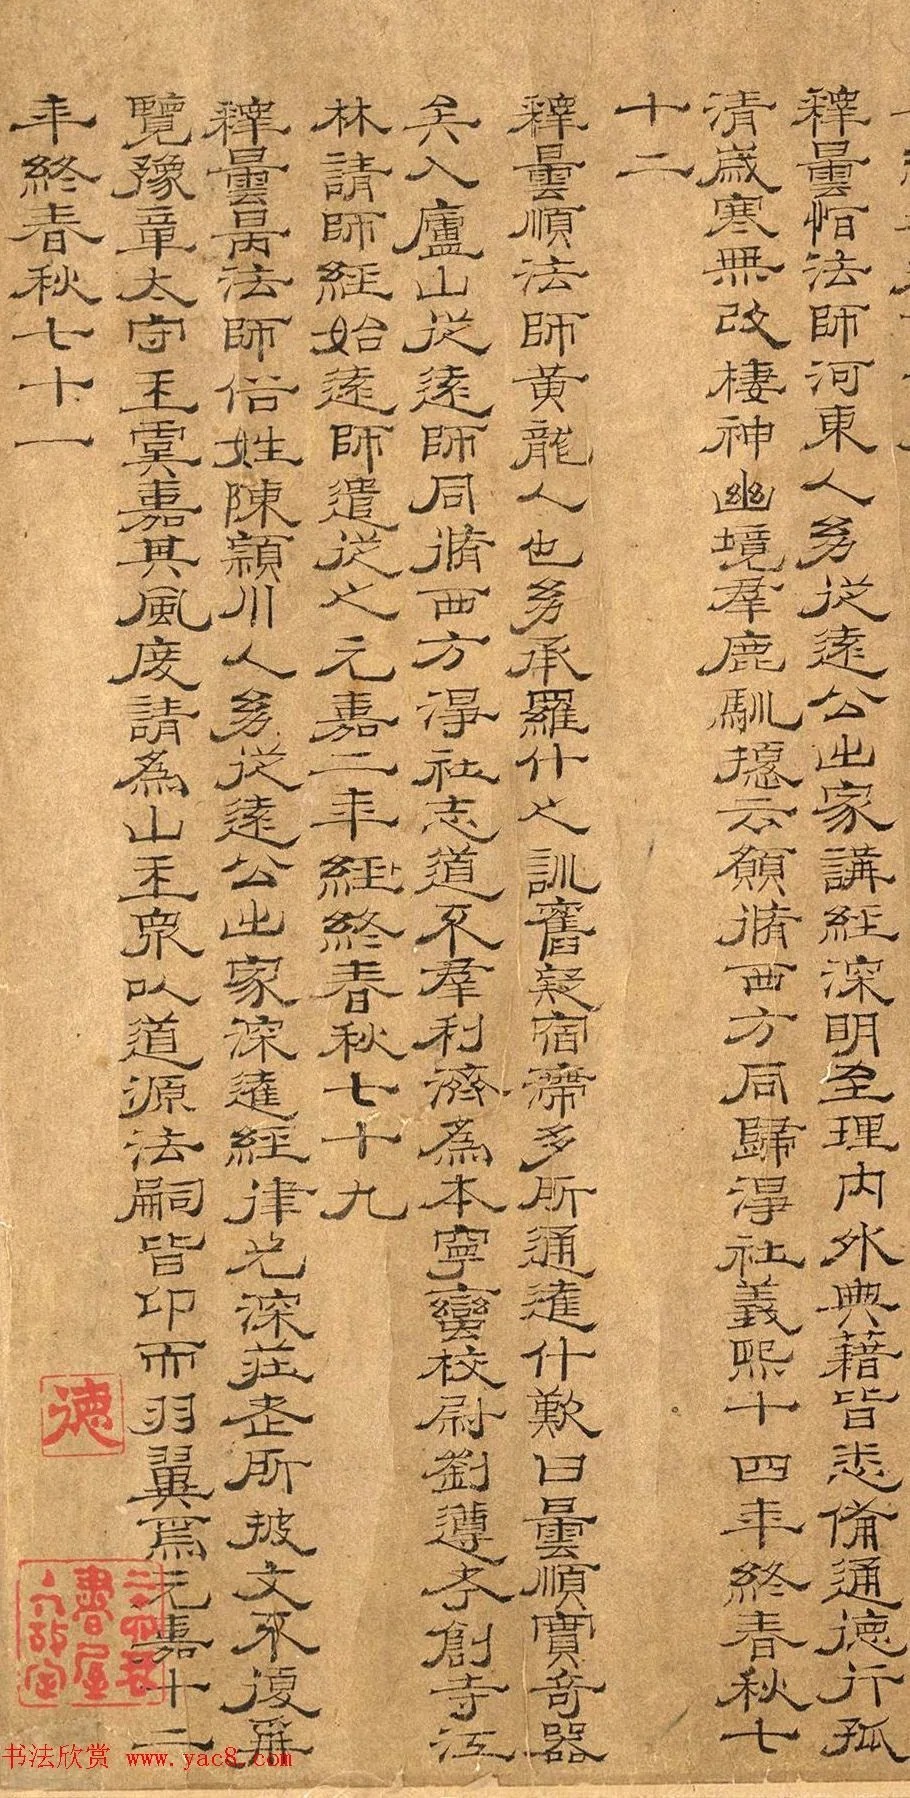 釋曇恒法師河東人多從遠公出家講經深明至理內外典藉皆悉俻通德行孤
清歲寒無改棲神幽境羣鹿馴擾云願脩西方同歸淨社義熙十四年終春秋七
十二
釋曇順法師黄龍人也多承羅什之訓舊疑宿滯多所通達什歎曰曇順實奇器
矣入廬山從遠師同脩西方淨社志道不羣利濟為本寧蠻校尉劉遵孝創寺江
林請師經始遠師遣從之元嘉二年經終春秋七十九
釋曇昺法師俗姓陳潁川人多從遠公出家深達經律尤深莊老所披文不復再
覽豫章太守王虞嘉其風度請為山主眾以道源法嗣皆仰而羽翼焉元嘉十二
年終春秋七十一
德
書屋
书法欣赏 www.yac8.com